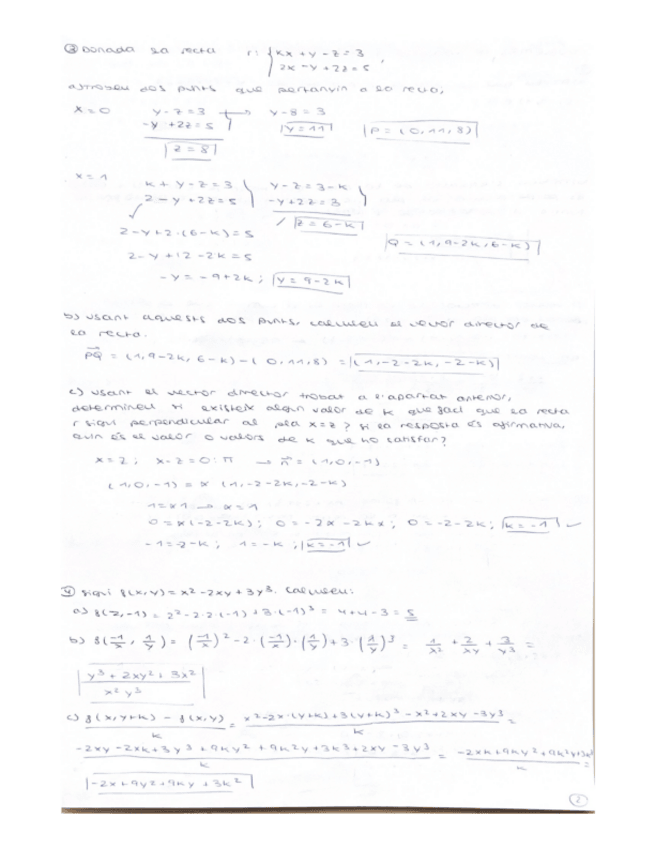 ③ Donada la recta r: { kx + y - z = 3
2x - y + 2z = 5 ,
a) trobeu dos punts que pertanyin a la recta,
x = 0 y - z = 3 → y - 8 = 3
-y + 2z = 5 y = 11 P = (0, 11, 8)
z = 8
x = 1
k + y - z = 3 y - z = 3 - k
2 - y + 2z = 5 -y + 2z = 3
✓ z = 6 - k
2 - y + 2·(6 - k) = 5
Q = (1, 9-2k, 6-k)
2 - y + 12 - 2k = 5
-y = -9 + 2k ; y = 9 - 2k
b) usant aquests dos punts, calculeu el vector director de
la recta.
PQ = (1, 9-2k, 6-k) - (0, 11, 8) = (1, -2-2k, -2-k)
c) usant el vector director trobat a l'apartat anterior,
determineu si existeix algun valor de k que faci que la recta
r sigui perpendicular al pla x = z? Si la resposta és afirmativa,
quin és el valor o valors de k que ho satisfan?
x = z ; x - z = 0 : π → n = (1, 0, -1)
(1, 0, -1) = α (1, -2-2k, -2-k)
1 = α1 → α = 1
0 = α(-2-2k) ; 0 = -2α - 2kα ; 0 = -2-2k ; k = -1 ✓
-1 = -2-k ; 1 = -k ; k = -1 ✓
④ Sigui f(x,y) = x² - 2xy + 3y³. Calculeu:
a) f(2,-1) = 2² - 2·2·(-1) + 3·(-1)³ = 4 + 4 - 3 = 5
b) f(-1/x, 1/y) = (-1/x)² - 2·(-1/x)·(1/y) + 3·(1/y)³ = 1/x² + 2/xy + 3/y³ =
y³ + 2xy² + 3x² / x²y³
c) f(x, y+k) - f(x,y) / k = x² - 2x·(y+k) + 3(y+k)³ - x² + 2xy - 3y³ / k =
-2xy - 2xk + 3y³ + 9ky² + 9k²y + 3k³ + 2xy - 3y³ / k = -2xk + 9ky² + 9k²y + 3k³ / k =
-2x + 9y² + 9ky + 3k²
2